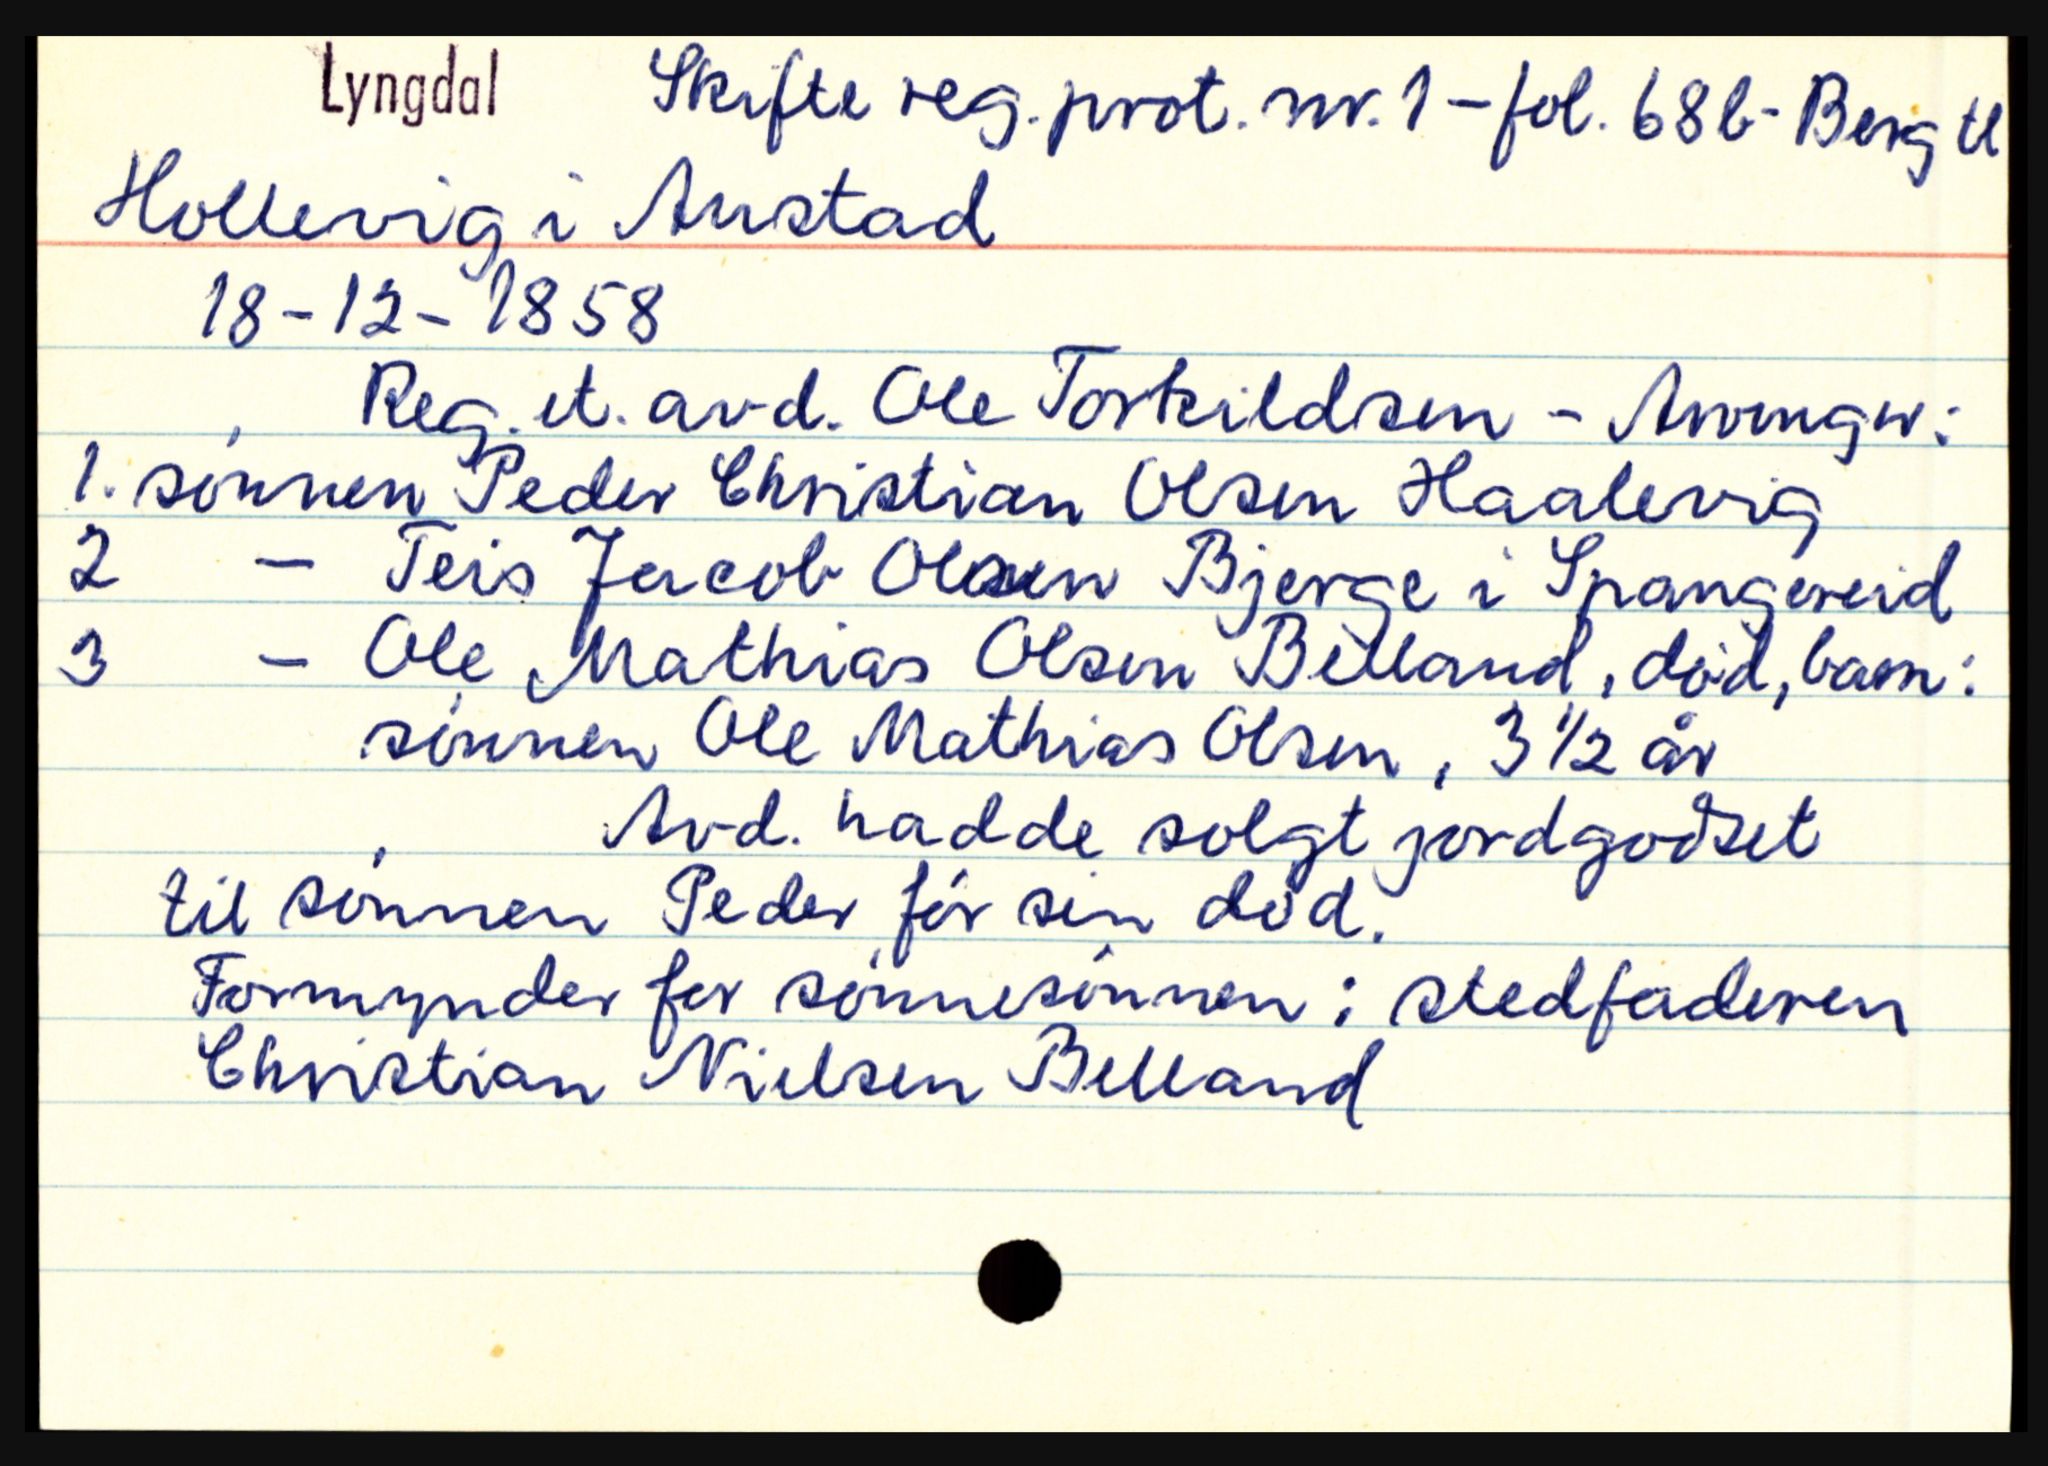 Lyngdal Skifte reg. prot. nr. 1 - fol. 68b - Berg tl
Hollevig i Austad
18-12-1858
Reg. et. avd. Ole Torkildsen - Arvinger:
1. sønnen Peder Christian Olsen Haalevig
2 - Teis Jacob Olsen Bjerge i Spangereid
3 - Ole Mathias Olsen Belland, død, barn:
sønnen Ole Mathias Olsen, 3 1/2 år
Avd. hadde solgt jordgodset
til sønnen Peder før sin død.
Formynder for sønnesønnen: stedfaderen
Christian Nielsen Belland